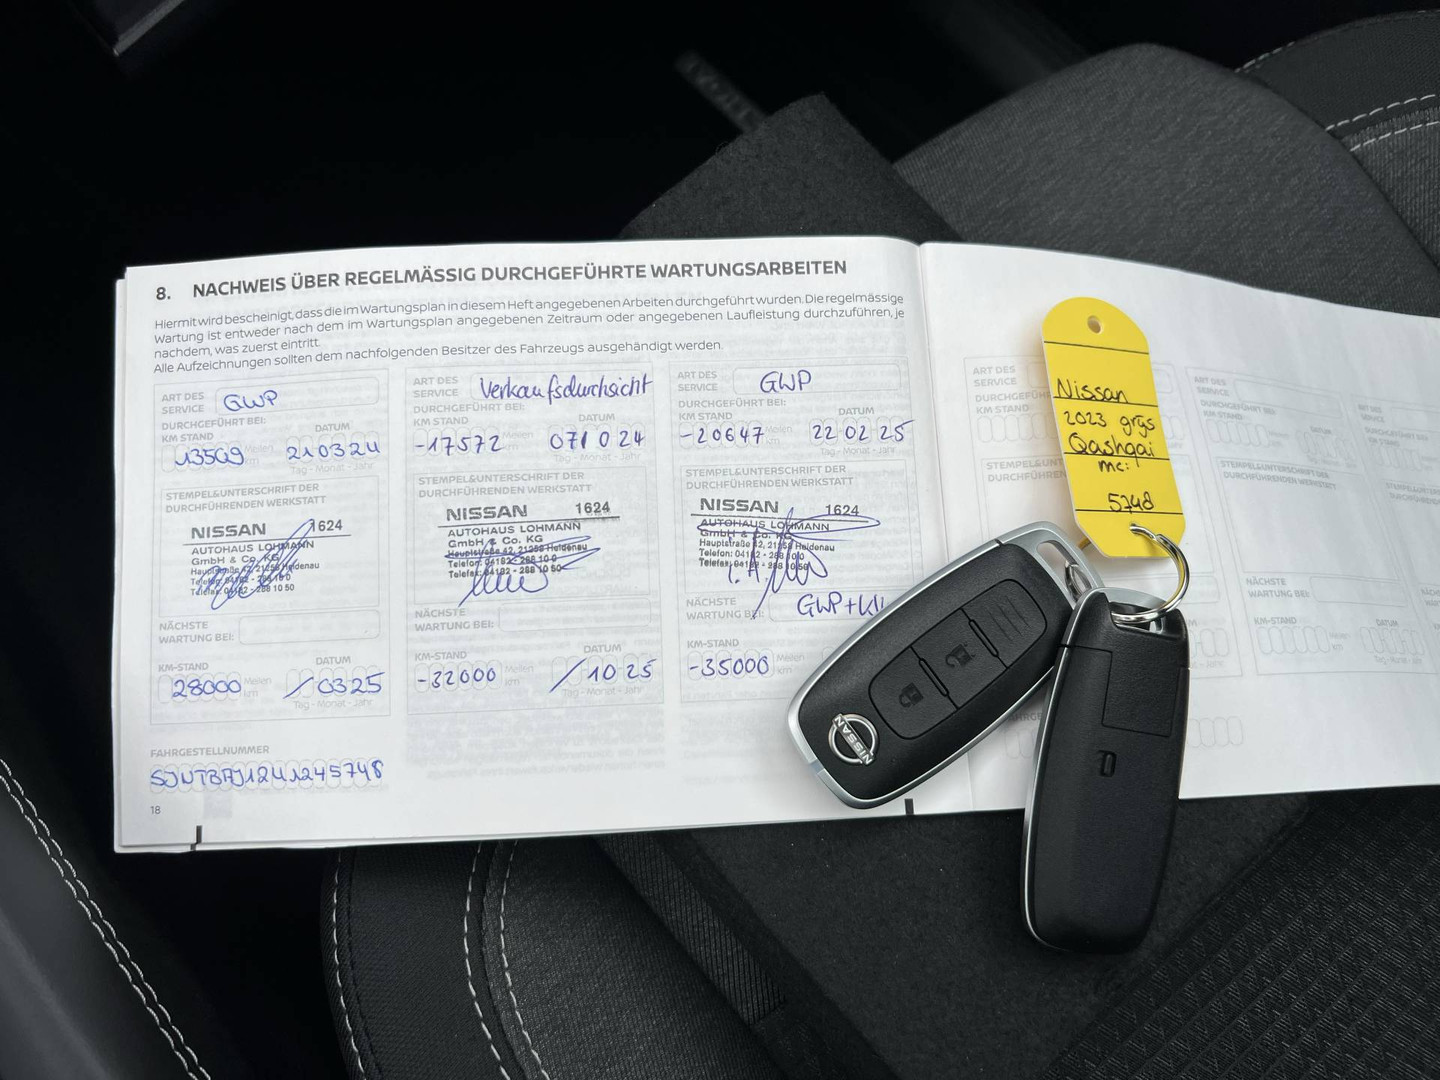 8. NACHWEIS ÜBER REGELMÄSSIG DURCHGEFÜHRTE WARTUNGSARBEITEN
Hiermit wird bescheinigt, dass die im Wartungsplan in diesem Heft angegebenen Arbeiten durchgeführt wurden. Die regelmässige
Wartung ist entweder nach dem im Wartungsplan angegebenen Zeitraum oder angegebenen Laufleistung durchzuführen, je
nachdem, was zuerst eintritt.
Alle Aufzeichnungen sollten dem nachfolgenden Besitzer des Fahrzeugs ausgehändigt werden.
ART DES
SERVICE GWP
DURCHGEFÜHRT BEI:
KM STAND DATUM
13509 Meilen km 21 03 24
Tag - Monat - Jahr
STEMPEL&UNTERSCHRIFT DER
DURCHFÜHRENDEN WERKSTATT
NISSAN 1624
AUTOHAUS LOHMANN
GmbH & Co. KG
Hauptstraße 42, 21258 Heidenau
Telefon: 04182 - 288 10 0
Telefax: 04182 - 288 10 50
NÄCHSTE
WARTUNG BEI:
KM-STAND DATUM
28000 Meilen km / 03 25
Tag - Monat - Jahr
ART DES
SERVICE Verkaufsdurchsicht
DURCHGEFÜHRT BEI:
KM STAND DATUM
-17572 Meilen km 07 10 24
Tag - Monat - Jahr
STEMPEL&UNTERSCHRIFT DER
DURCHFÜHRENDEN WERKSTATT
NISSAN 1624
AUTOHAUS LOHMANN
GmbH & Co. KG
Hauptstraße 42, 21258 Heidenau
Telefon: 04182 - 288 10 0
Telefax: 04182 - 288 10 50
NÄCHSTE
WARTUNG BEI:
KM-STAND DATUM
-32000 Meilen km / 10 25
Tag - Monat - Jahr
ART DES
SERVICE GWP
DURCHGEFÜHRT BEI:
KM STAND DATUM
-20647 Meilen km 22 02 25
Tag - Monat - Jahr
STEMPEL&UNTERSCHRIFT DER
DURCHFÜHRENDEN WERKSTATT
NISSAN 1624
AUTOHAUS LOHMANN
GmbH & Co. KG
Hauptstraße 42, 21258 Heidenau
Telefon: 04182 - 288 10 0
Telefax: 04182 - 288 10 50
i. A.
NÄCHSTE
WARTUNG BEI: GWP+
KM-STAND
-35000 Meilen km
FAHRGESTELLNUMMER
SJNTBAJ12U1245748
18
ART DES
SERVICE
KM STAND
ART DES
SERVICE
DURCHGEFÜHRT BEI:
KM STAND
STEMPEL&UNTERSCHRIFT DER
DURCHFÜHRENDEN WERKSTATT
NÄCHSTE
WARTUNG BEI:
KM-STAND DATUM
Nissan
2023 grgs
Qashqai
mc:
5748
NISSAN